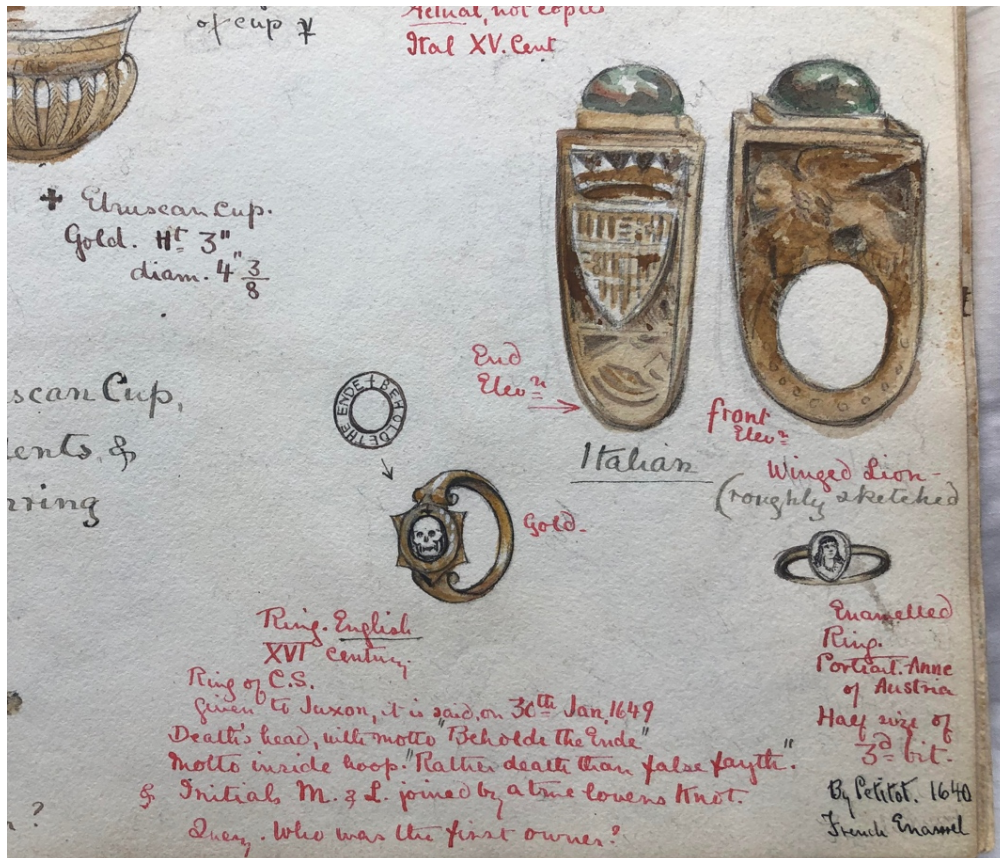 of cup
Actual, not copies
Ital XV. Cent
+ Etruscan Cup.
Gold. Ht 3"
diam. 4" 3/8
scan Cup,
ents, &
rring
BEHOLDE THE ENDE +
End
Elevn
front
Elevn
Italian
Winged Lion
(roughly sketched
Gold.
Ring. English
XVI Century.
Ring of C.S.
Given to Juxon, it is said, on 30th Jan. 1649
Death's head, with motto "Beholde the Ende"
Motto inside hoop. "Rather death than false fayth."
& Initials M. & L. joined by a true lovers Knot.
Query. Who was the first owner?
Enamelled
Ring.
Portrait. Anne
of Austria
Half size of
3d bit.
By Petitot. 1640
French Enamel
?